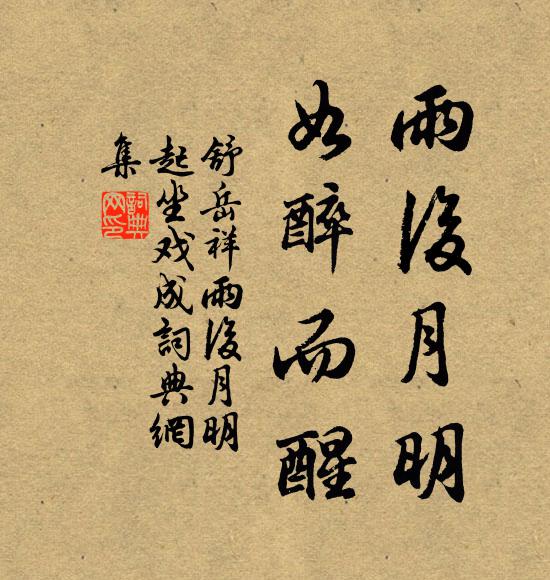 雨後月明
如醉而醒
舒岳祥雨後月明
起坐戏成詞典網
集
詞典
网印